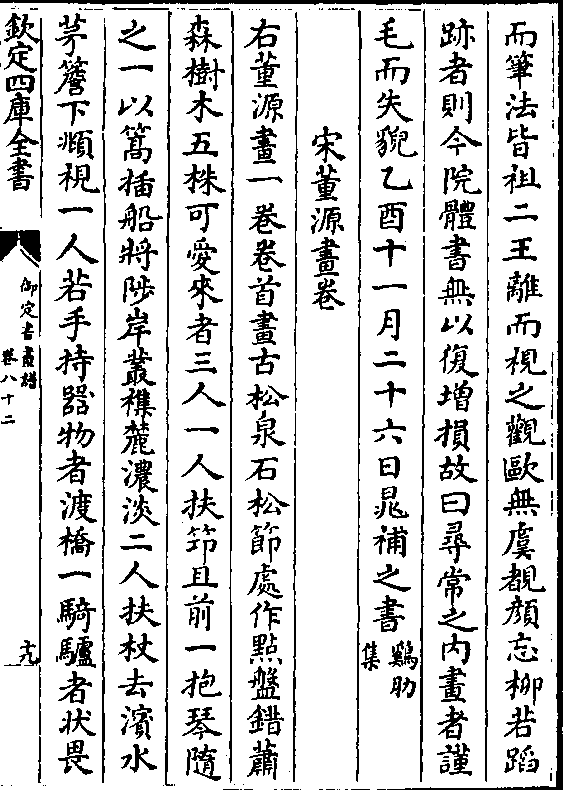 而筆法皆祖二王離而視之觀歐無虞覩顔忘柳若蹈
跡者則今院體書無以復增損故曰尋常之内畫者謹
毛而失貌乙酉十一月二十六日晁補之書雞肋集
宋董源畫卷
右董源畫一卷卷首畫古松泉石松節處作點盤錯蕭
森樹木五株可愛來者三人一人扶笻且前一抱琴隨
之一以篙插船將陟岸叢襍麓濃淡二人扶杖去濱水
茅簷下頫視一人若手持器物者渡橋一騎驢者状畏
欽定四庫全書
御定書畫譜
卷八十二
十九